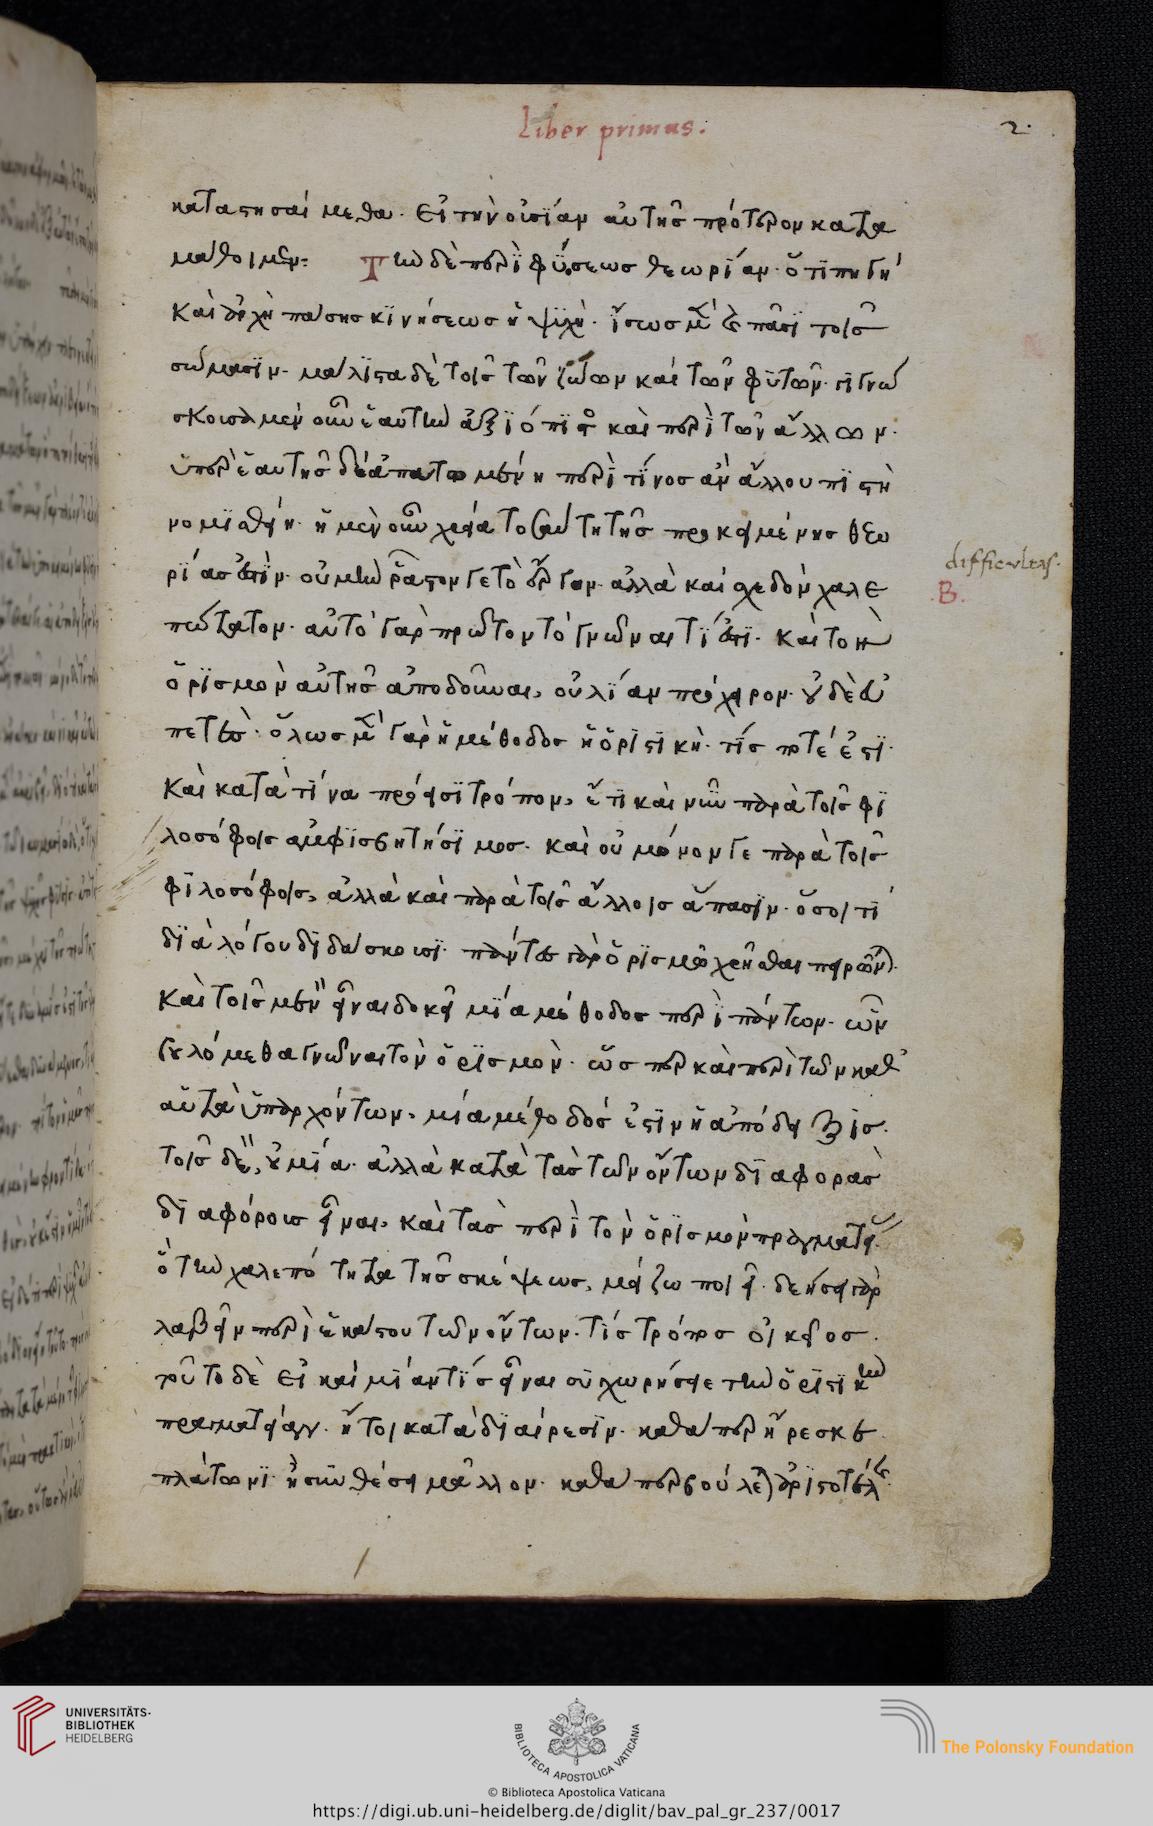 Liber primus.
2.
καταστησαίμεθα. εἰ τὴν οὐσίαν αὐτῆς πρότερον κατα
μάθοιμεν: Τὴν δὲ περὶ φύσεως θεωρίαν. ὅτι πηγὴ
καὶ ἀρχὴ πάσης κινήσεως ἡ ψυχὴ. ἴσως μὲν καὶ πᾶσι τοῖς
σώμασιν. μάλιστα δὲ τοῖς τῶν ζώων καὶ τῶν φυτῶν. γιγνώ
σκουσα μὲν οὖν ἑαυτὴν ἀξιόπιστος καὶ περὶ τῶν ἄλλων.
ὑπὲρ ἑαυτῆς δὲ ἀπατωμένη περὶ τίνος ἂν ἄλλου πιστὴ
νομισθείη. ἡ μὲν οὖν χρεία τοσαύτη τῆς προκειμένης θεω
ρίας ἐστὶν. οὐ μὴν ῥᾷστόν γε τὸ ἔργον. ἀλλὰ καὶ σχεδὸν χαλε
πώτατον. αὐτὸ γὰρ πρῶτον τὸ γνῶναι τί ἐστι. καὶ τὸν
ὁρισμὸν αὐτῆς ἀποδοῦναι, οὐ λίαν πρόχειρον. οὐδὲ εὐ
πετὲς. ὅλως μὲν γὰρ ἡ μέθοδος ἡ ὁριστικὴ. τίς ποτέ ἐστι.
καὶ κατὰ τίνα πρόεισι τρόπον, ἔτι καὶ νῦν παρὰ τοῖς φι
λοσόφοις ἀμφισβητήσιμος. καὶ οὐ μόνον γε παρὰ τοῖς
φιλοσόφοις, ἀλλὰ καὶ παρὰ τοῖς ἄλλοις ἅπασιν. ὅσοι τι
διὰ λόγου διδάσκουσι. πάντες γὰρ ὁρισμῷ χρῆσθαι πειρῶνται.
καὶ τοῖς μὲν εἶναι δοκεῖ μία μέθοδος περὶ πάντων. ὧν
βουλόμεθα γνῶναι τὸν ὁρισμὸν. ὥσπερ καὶ περὶ τῶν καθ'
αὑτὰ ὑπαρχόντων, μία μέθοδός ἐστιν ἡ ἀπόδειξις.
τοῖς δὲ, οὐ μία. ἀλλὰ κατὰ τὰς τῶν ὄντων διαφορὰς
διαφόροις εἶναι, καὶ τὰς περὶ τὸν ὁρισμὸν πραγματείας.
ὃ τὴν χαλεπότητα τῆς σκέψεως, μείζω ποιεῖ. δεήσει γὰρ
λαβεῖν περὶ ἑκάστου τῶν ὄντων. τίς τρόπος οἰκεῖος.
τοῦτο δὲ εἰ καὶ μίαν τίς εἶναι συγχωρήσειε τὴν ὁριστικὴν
πραγματείαν. ἤτοι κατὰ διαίρεσιν. καθάπερ ἤρεσκε
πλάτωνι. ἢ συνθέσει μᾶλλον. καθάπερ βούλεται ἀριστοτέλης.
difficultas.
B.
UNIVERSITÄTS-
BIBLIOTHEK
HEIDELBERG
BIBLIOTECA APOSTOLICA VATICANA
The Polonsky Foundation
© Biblioteca Apostolica Vaticana
https://digi.ub.uni-heidelberg.de/diglit/bav_pal_gr_237/0017